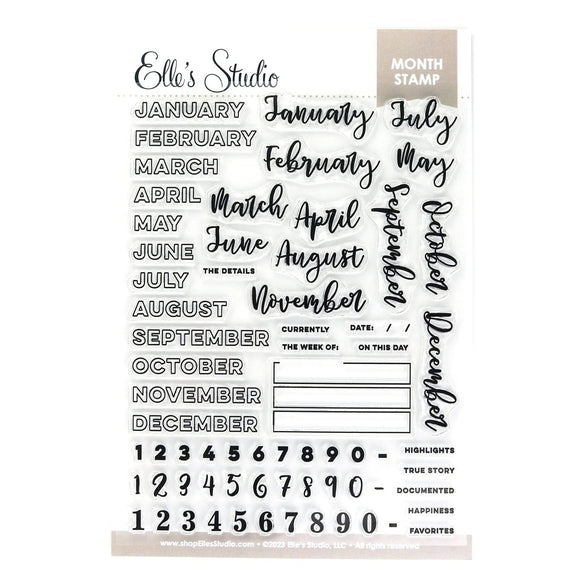 Elle's Studio
MONTH
STAMP
JANUARY
FEBRUARY
MARCH
APRIL
MAY
JUNE
JULY
AUGUST
SEPTEMBER
OCTOBER
NOVEMBER
DECEMBER
January
July
February
May
March
April
June
August
September
October
THE DETAILS
November
December
CURRENTLY
DATE: / /
THE WEEK OF:
ON THIS DAY
1 2 3 4 5 6 7 8 9 0 –
1 2 3 4 5 6 7 8 9 0 –
1 2 3 4 5 6 7 8 9 0 –
HIGHLIGHTS
TRUE STORY
DOCUMENTED
HAPPINESS
FAVORITES
www.shopEllesStudio.com • ©2023 Elle's Studio, LLC • All rights reserved